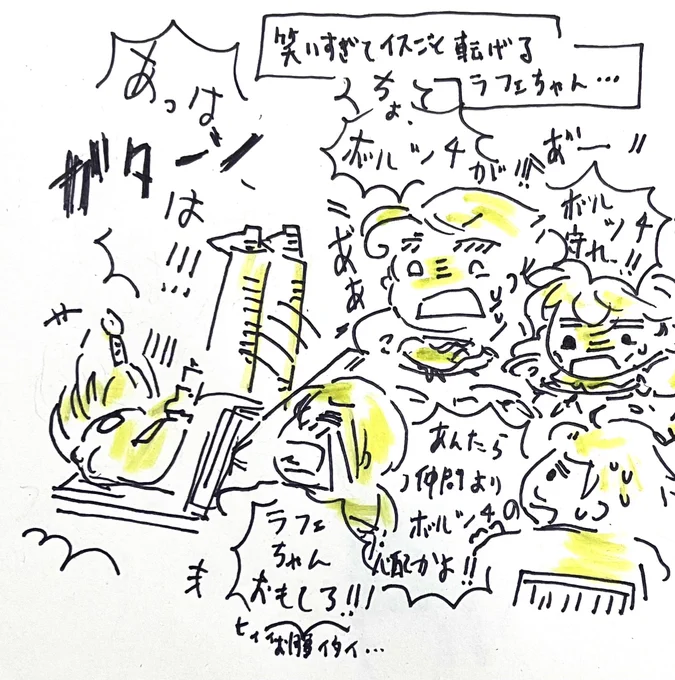 笑いすぎてイスごと転げる
ラフェちゃん…
あっは
は!!!
ガターン
ちょ、
ボルツ4
が!!!
あ゛ー〃
ああ
ボル
ツ4
守れー!!
あんたら
仲間より
ボルツ4の
心配かよ!!
ラフェ
ちゃん
おもしろ!!!
ヒィィお腹イタイ…